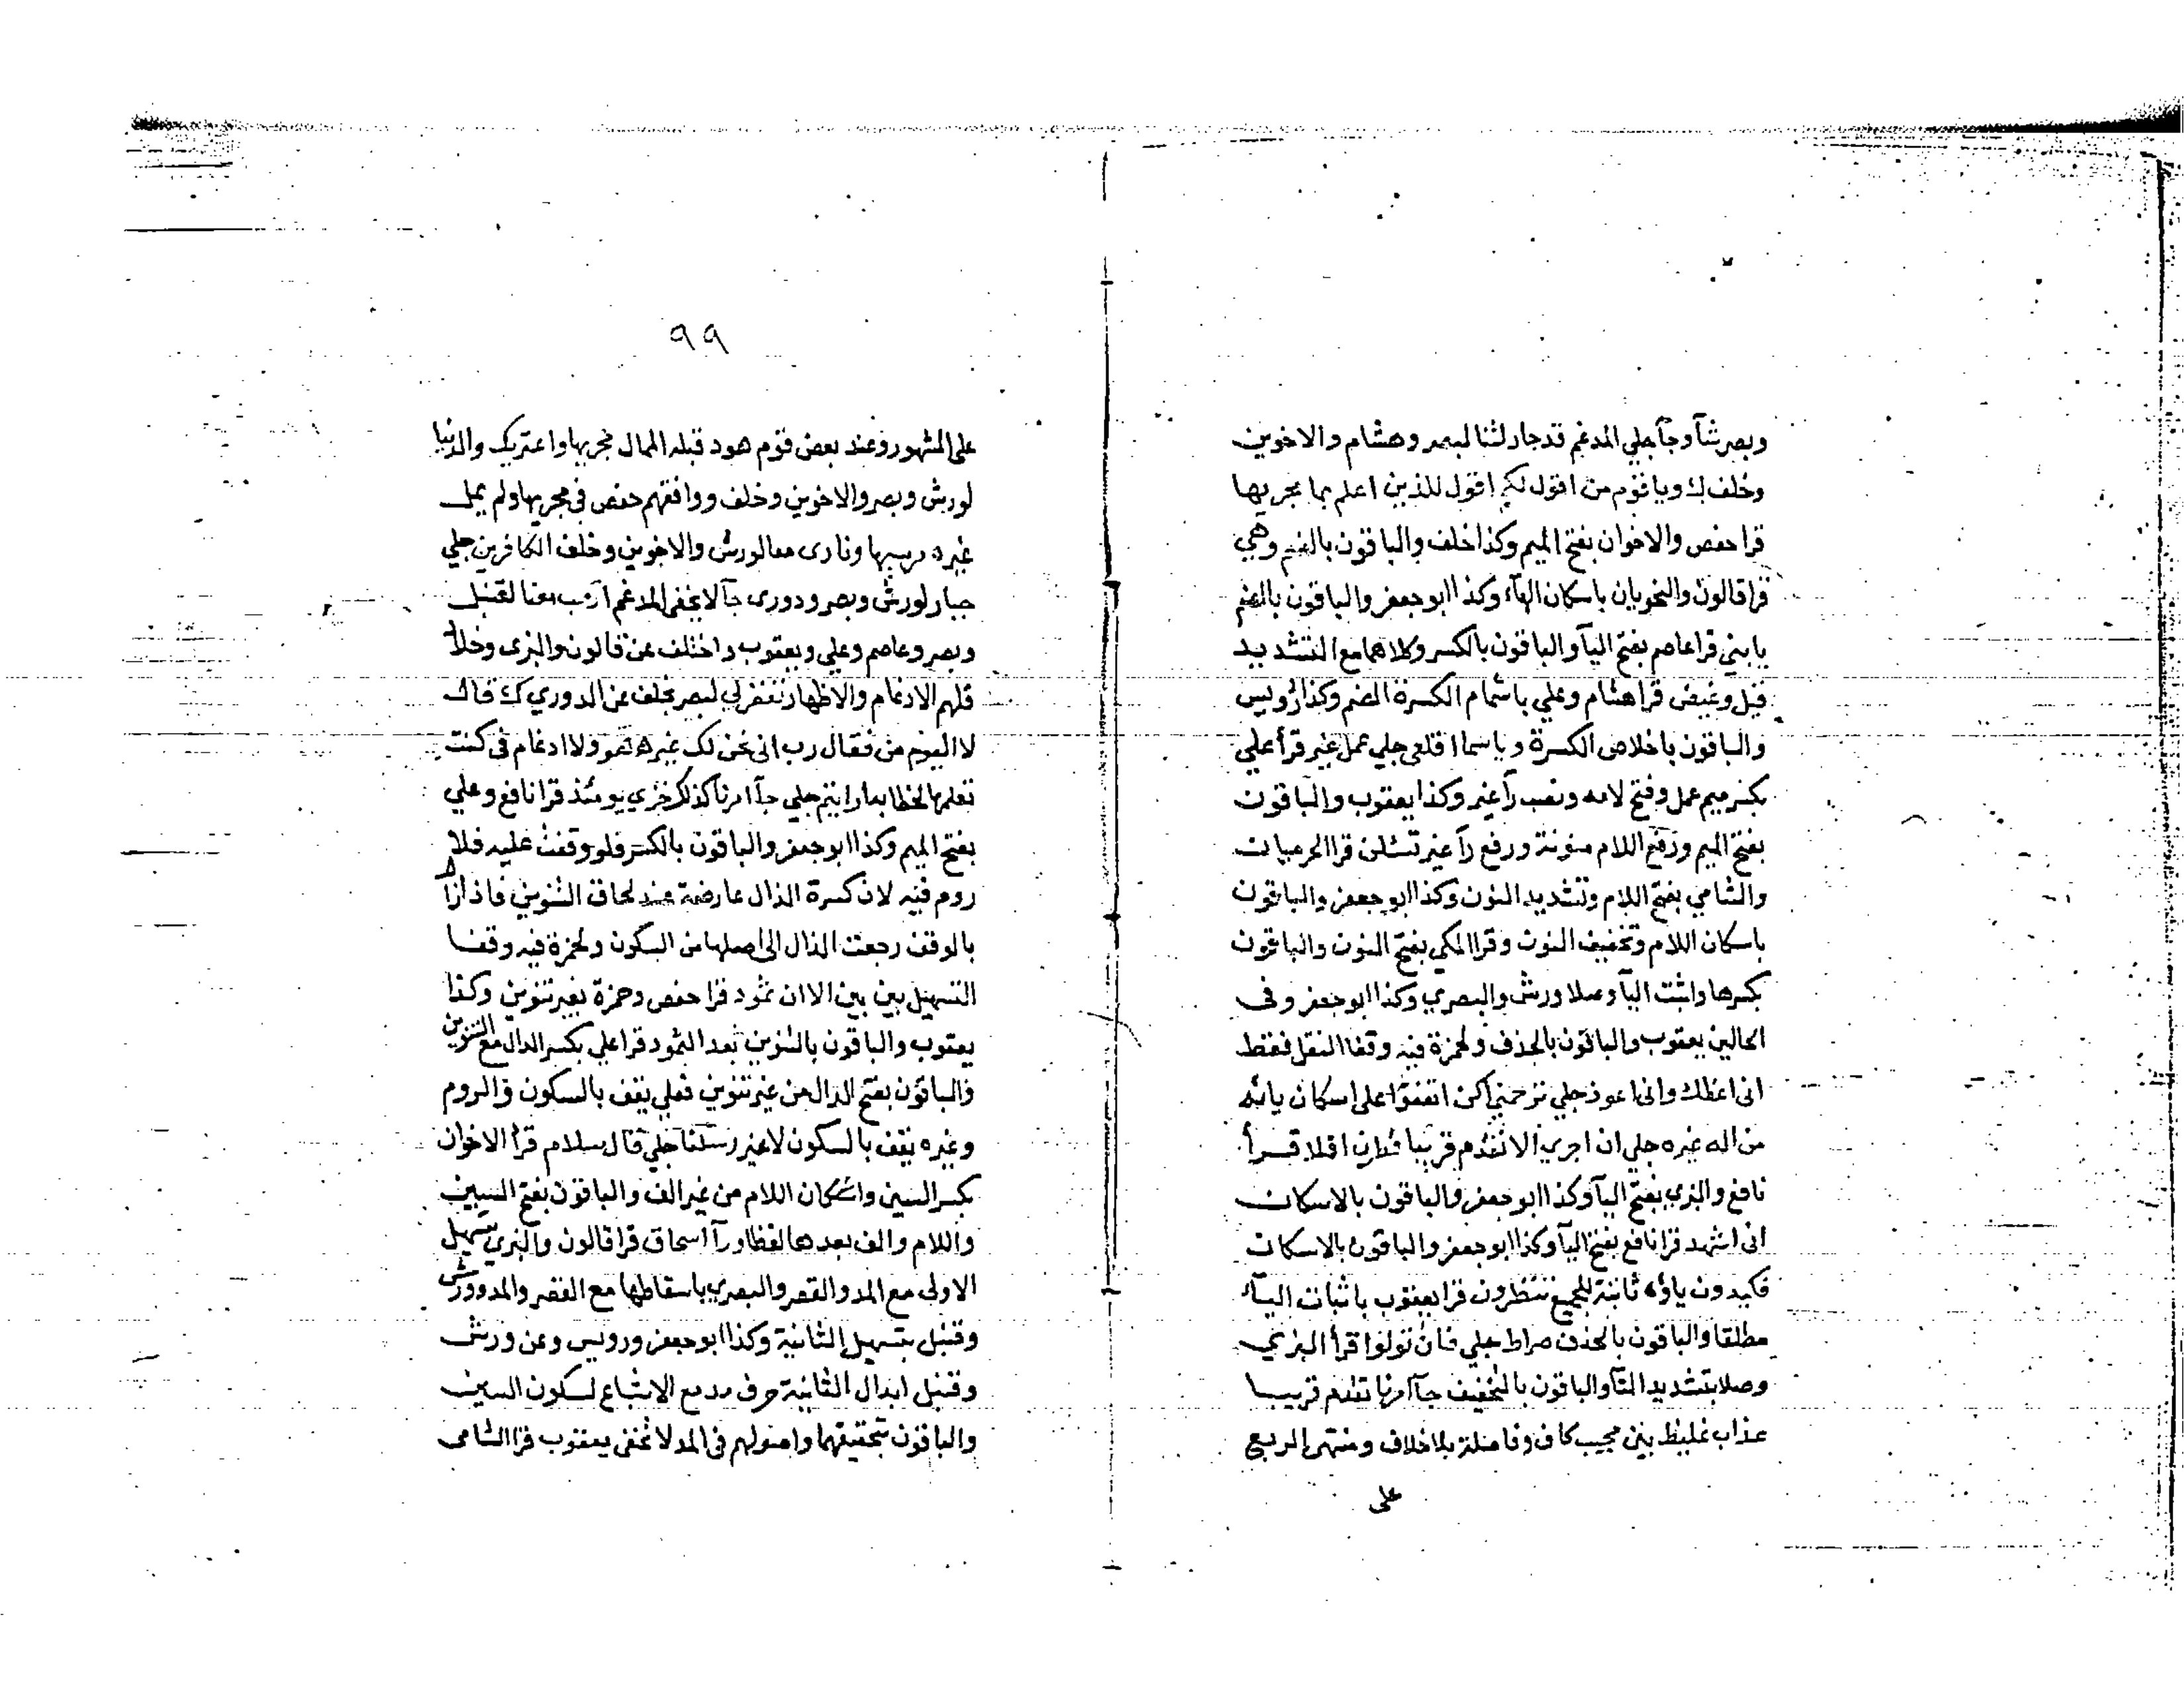 وبصر شآ وجآ جلي المدغم قد جادلتنا لبصر وهشام والاخوين
وخلف ك ويا قوم من اقول لكم اقول للذين اعلم بما مجريها
قرا حفص والاخوان بفتح الميم وكذا خلف والباقون بالضم وهي
قرا قالون والنحويان باسكان الهآء وكذا ابو جعفر والباقون بالضم
يا بني قرا عاصم بفتح اليآ والباقون بالكسر وكلاهما مع التشديد
قيل وغيض قرا هشام وعلي باشمام الكسرة الضم وكذا رويس
والباقون باخلاص الكسرة ويا سما اقلعي جلي عمل غير قرأ علي
بكسر ميم عمل وفتح لامه ونصب رآ غير وكذا يعقوب والباقون
بفتح الميم ورفع اللام منونة ورفع رآ غير تسئلن قرا الحرميان
والشامي بفتح اللام وتشديد النون وكذا ابو جعفر والباقون
باسكان اللام وتخفيف النون وقرا المكي بفتح النون والباقون
بكسرها واثبت اليآ وصلا ورش والبصري وكذا ابو جعفر وفي
الحالين يعقوب والباقون بالحذف ولحمزة فيه وقفا النقل فقط
انى اعظك وانى اعوذ جلي ترحمني اكن اتفقوا على اسكان يائه
من اله غيره جلي ان اجري الا تقدم قريبا فطرن افلا قرأ
نافع والبزي بفتح اليآ وكذا ابو جعفر والباقون بالاسكان
انى اشهد قرا نافع بفتح اليآ وكذا ابو جعفر والباقون بالاسكان
فكيدون ياؤه ثابتة للجميع تنظرون قرا يعقوب باثبات اليآء
مطلقا والباقون بالحذف صراط جلي فان تولوا قرأ البزي
وصلا بتشديد التآ والباقون بالتخفيف جآ امرنا تقدم قريبا
عذاب غليظ بين مجيب كاف وفاصلة بلا خلاف ومنتهى الربع
على
٩٩
على المشهور وعند بعض قوم هود قبله الممال مجريها واعتريك والدنيا
لورش وبصر والاخوين وخلف ووافقهم حفص في مجريها ولم يمل
غيره مرسيها ونادى معا لورش والاخوين وخلف الكافرين جلي
جبار لورش وبصر ودورى جآ لا يخفى المدغم اركب معنا لقنبل
وبصر وعاصم وعلي ويعقوب واختلف عن قالون والبزى وخلاد
فلهم الادغام والاظهار تغفر لي لبصر بخلف عن الدوري ك قال
لا اليوم من فقال رب انى نحن لك غيره هو ولا ادغام فى كنت
تعلمها لخطابه ارايتم جلي جآ امرنا كذلك خزي يومئذ قرا نافع وعلي
بفتح الميم وكذا ابو جعفر والباقون بالكسر فلو وقفت عليه فلا
روم فيه لان كسرة الذال عارضة عند لحاق التنوين فاذا زال
بالوقف رجعت الذال الى اصلها من السكون ولحمزة فيه وقفا
التسهيل بين بين الا ان ثمود قرا حفص وحمزة بغير تنوين وكذا
يعقوب والباقون بالتنوين بعدا لثمود قرا علي بكسر الدال مع التنوين
والباقون بفتح الدال من غير تنوين فعلي يقف بالسكون والروم
وغيره يقف بالسكون لا غير رسلنا جلي قال سلام قرأ الاخوان
بكسر السين واسكان اللام من غير الف والباقون بفتح السين
واللام والف بعدها لفظا ورآ اسحاق قرا قالون والبزي بتسهيل
الاولى مع المد والقصر والبصري باسقاطها مع القصر والمد وورش
وقنبل بتسهيل الثانية وكذا ابو جعفر ورويس وعن ورش
وقنبل ابدال الثانية حرف مد مع الاشباع لسكون السين
والباقون بتحقيقهما واصولهم فى المد لا تخفى يعقوب قرا الشامي